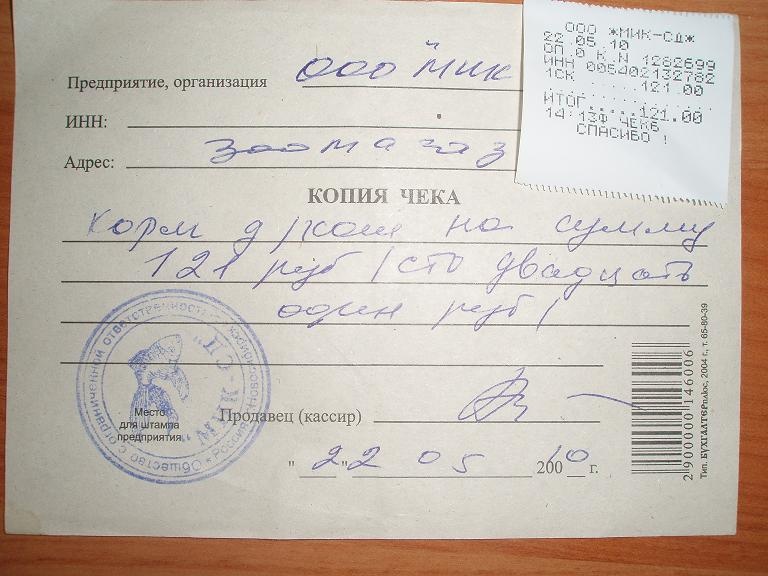 ООО *МИК-СД*
22.05.10
ОП.0 К N 1282699
ИНН 005402132782
1СК .......121.00
ИТОГ.....121.00
14:13Ф ЧЕК6
СПАСИБО !
Предприятие, организация ООО Мик
ИНН:
Адрес: зоомагаз
КОПИЯ ЧЕКА
Корм д/кош на сумму
121 руб /сто двадцать
один руб/
Общество с ограниченной ответственностью
"МИК-СД"
Место
для штампа
предприятия
Продавец (кассир)
"22" 05 2010 г.
2 900000 146006
Тип. БУХГАЛТЕРплюс, 2004 г., т. 65-80-39